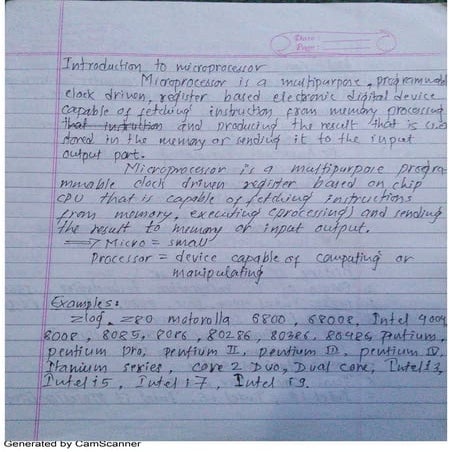 Date:
Page:
Introduction to microprocessor
Microprocessor is a multipurpose, programmable
clock driven, register based electronic digital device
capable of fetching instruction from memory processing
that instruction and producing the result that is
stored in the memory or sending it to the input
output port.
Microprocessor is a multipurpose progra-
mmable clock driven register based on chip
CPU that is capable of fetching instructions
from memory, executing (processing) and sending
the result to memory or input output.
⇒ Micro = small
Processor = device capable of computing or
manipulating
Examples:
Zlog, Z80 motorolla 6800, 68008, Intel 4004
8008, 8085, 8086, 80286, 80386, 80486 pentium,
pentium pro, pentium II, pentium III, pentium IV,
Itanium series, core 2 Duo, Dual core, Intel i3,
Intel i5, Intel i7, Intel i9.
Generated by CamScanner